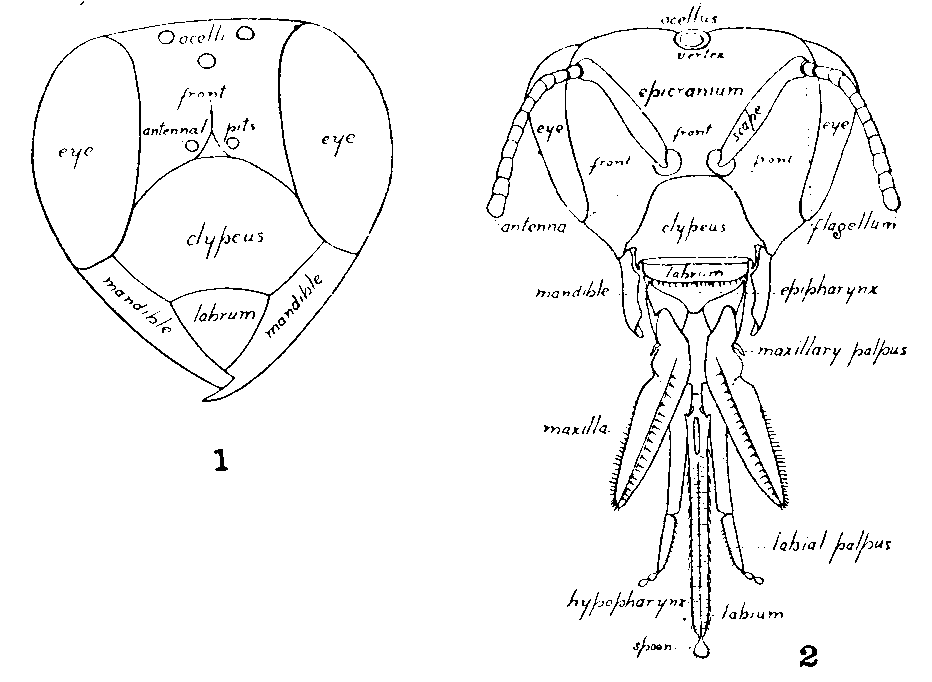 ocelli
front
antennal pits
eye
eye
clypeus
mandible
labrum
mandible
1
ocellus
vertex
epicranium
scape
front
eye
eye
front
front
antenna
clypeus
flagellum
labrum
mandible
epipharynx
maxillary palpus
maxilla
labial palpus
hypopharynx
labium
spoon
2